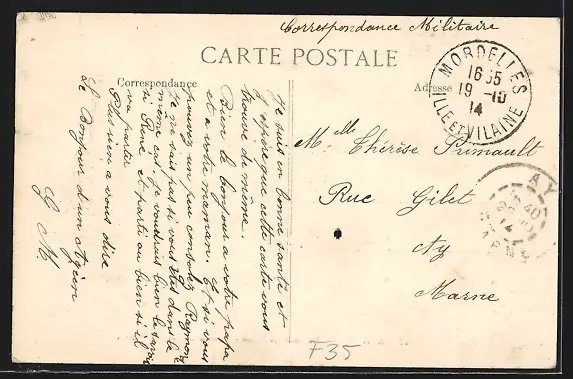 Correspondance Militaire
CARTE POSTALE
Correspondance
Adresse
MORDELLES
1635
19 -10
14
ILLE ET VILAINE
AY
Melle Thérèse Primault
Rue Gilet
Ay
Marne
Je suis en bonne santé et
j'espère que cette carte vous
trouve de même.
Bien le bonjour a votre papa
et a votre maman. Et si vous
pouvez un peu consolez Raymonde
je ne sais pas si vous êtes dans le
même cas je voudrais bien le savoir
si René et parti ou bien si il
va partir
Plus rien a vous dire
Le Bonjour d'un Agéen
G M
F35